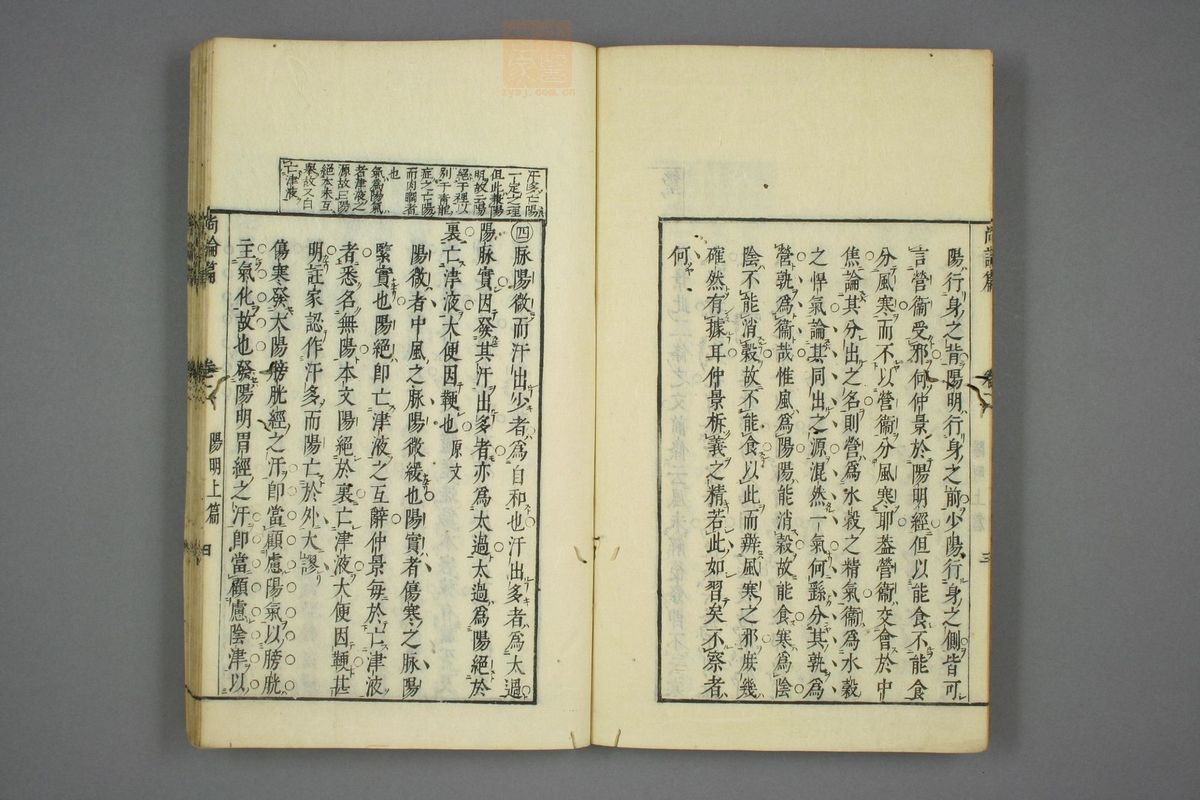 尚論篇
陽行身之背陽明行身之前少陽行身之側皆可
言營衞受邪何仲景於陽明經但以能食不能食
分風寒而不以營衞分風寒耶葢營衞交會於中
焦論其分出之名則營爲水榖之精氣衞爲水榖
之悍氣論其同出之源混然一氣何繇分其孰爲
營孰爲衞哉惟風爲陽陽能消榖故能食寒爲陰
陰不能消榖故不能食以此而辨風寒之邪庶幾
確然有據耳仲景析義之精若此如習矣不察者
何
三
汗多亡陽
一定之理
但此兼陽
明故云陽
絕于裡以
別于青龍
症之亡陽
而肉瞤者
也
氣爲陽氣
者津液之
源故曰陽
絕本末互
舉故又曰
亡津液
㊃脉陽微而汗出少者爲自和也汗出多者爲太過
陽脉實因發其汗出多者亦爲太過太過爲陽絕於
裏亡津液大便因鞕也 原文
陽微者中風之脉陽微緩也陽實者傷寒之脉陽
緊實也陽絕卽亡津液之互辭仲景每於亡津液
者悉名無陽本文陽絕於裏亡津液大便因鞕甚
明註家認作汗多而陽亡於外大謬
傷寒發太陽膀胱經之汗卽當顧慮陽氣以膀胱
主氣化故也發陽明胃經之汗卽當顧慮陰津以
尚論篇
陽明上篇
四
zysj.com.cn